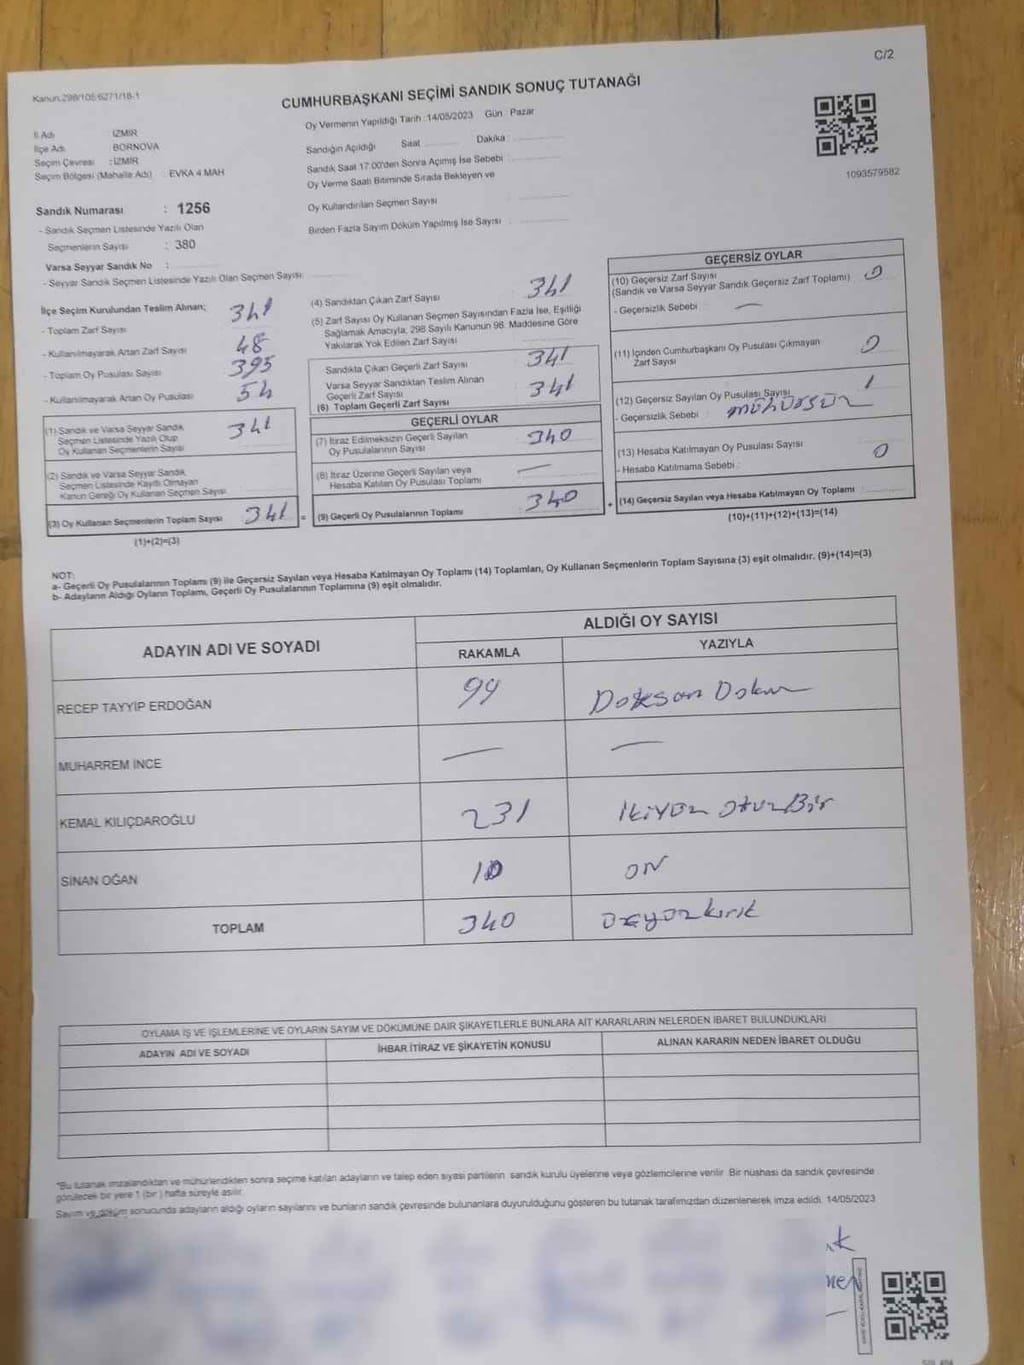 C/2
Kanun:298/105:6271/18-1
CUMHURBAŞKANI SEÇİMİ SANDIK SONUÇ TUTANAĞI
Oy Vermenin Yapıldığı Tarih :14/05/2023 Gün : Pazar
İl Adı İZMİR
İlçe Adı BORNOVA
Seçim Çevresi : İZMİR
Seçim Bölgesi (Mahalle Adı) : EVKA 4 MAH
Sandık Numarası : 1256
- Sandık Seçmen Listesinde Yazılı Olan
Seçmenlerin Sayısı : 380
Varsa Seyyar Sandık No :
- Seyyar Sandık Seçmen Listesinde Yazılı Olan Seçmen Sayısı:
Sandığın Açıldığı Saat Dakika :
Sandık Saat 17:00'den Sonra Açımış İse Sebebi :
Oy Verme Saati Bitiminde Sırada Bekleyen ve
Oy Kullandırılan Seçmen Sayısı :
Birden Fazla Sayım Döküm Yapılmış İse Sayısı :
1093579582
İlçe Seçim Kurulundan Teslim Alınan;
- Toplam Zarf Sayısı 341
- Kullanılmayarak Artan Zarf Sayısı 48
- Toplam Oy Pusulası Sayısı 395
- Kullanılmayarak Artan Oy Pusulası 54
(1) Sandık ve Varsa Seyyar Sandık
Seçmen Listesinde Yazılı Olup
Oy Kullanan Seçmenlerin Sayısı 341
(2) Sandık ve Varsa Seyyar Sandık
Seçmen Listesinde Kayıtlı Olmayan
Kanun Gereği Oy Kullanan Seçmen Sayısı
(3) Oy Kullanan Seçmenlerin Toplam Sayısı 341 =
(1)+(2)=(3)
(4) Sandıktan Çıkan Zarf Sayısı 341
(5) Zarf Sayısı Oy Kullanan Seçmen Sayısından Fazla İse, Eşitliği
Sağlamak Amacıyla, 298 Sayılı Kanunun 98. Maddesine Göre
Yakılarak Yok Edilen Zarf Sayısı
Sandıkta Çıkan Geçerli Zarf Sayısı 341
Varsa Seyyar Sandıktan Teslim Alınan
Geçerli Zarf Sayısı
(6) Toplam Geçerli Zarf Sayısı 341
GEÇERLİ OYLAR
(7) İtiraz Edilmeksizin Geçerli Sayılan
Oy Pusulalarının Sayısı 340
(8) İtiraz Üzerine Geçerli Sayılan veya
Hesaba Katılan Oy Pusulası Toplamı —
(9) Geçerli Oy Pusulalarının Toplamı 340 +
GEÇERSİZ OYLAR
(10) Geçersiz Zarf Sayısı
(Sandık ve Varsa Seyyar Sandık Geçersiz Zarf Toplamı) 0
- Geçersizlik Sebebi : —
(11) İçinden Cumhurbaşkanı Oy Pusulası Çıkmayan
Zarf Sayısı 0
(12) Geçersiz Sayılan Oy Pusulası Sayısı 1
- Geçersizlik Sebebi : mühürsür
(13) Hesaba Katılmayan Oy Pusulası Sayısı 0
- Hesaba Katılmama Sebebi :
(14) Geçersiz Sayılan veya Hesaba Katılmayan Oy Toplamı
(10)+(11)+(12)+(13)=(14)
NOT:
a- Geçerli Oy Pusulalarının Toplamı (9) ile Geçersiz Sayılan veya Hesaba Katılmayan Oy Toplamı (14) Toplamları, Oy Kullanan Seçmenlerin Toplam Sayısına (3) eşit olmalıdır. (9)+(14)=(3)
b- Adayların Aldığı Oyların Toplamı, Geçerli Oy Pusulalarının Toplamına (9) eşit olmalıdır.
ADAYIN ADI VE SOYADI
ALDIĞI OY SAYISI
RAKAMLA YAZIYLA
RECEP TAYYİP ERDOĞAN 99 Doksan Dokuz
MUHARREM İNCE — —
KEMAL KILIÇDAROĞLU 231 İkiyüz otuzBir
SİNAN OĞAN 10 ON
TOPLAM 340 üçyüzkırk
OYLAMA İŞ VE İŞLEMLERİNE VE OYLARIN SAYIM VE DÖKÜMÜNE DAİR ŞİKAYETLERLE BUNLARA AİT KARARLARIN NELERDEN İBARET BULUNDUKLARI
ADAYIN ADI VE SOYADI İHBAR İTİRAZ VE ŞİKAYETİN KONUSU ALINAN KARARIN NEDEN İBARET OLDUĞU
*Bu tutanak imzalandıktan ve mühürlendikten sonra seçime katılan adayların ve talep eden siyasi partilerin sandık kurulu üyelerine veya gözlemcilerine verilir. Bir nüshası da sandık çevresinde
görülecek bir yere 1 (bir ) hafta süreyle asılır.
Sayım ve döküm sonucunda adayların aldığı oyların sayılarını ve bunların sandık çevresinde bulunanlara duyurulduğunu gösteren bu tutanak tarafımızdan düzenlenerek imza edildi. 14/05/2023